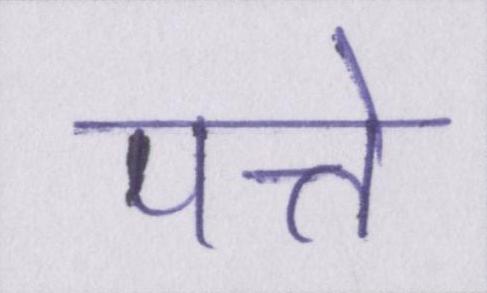 पत्ते